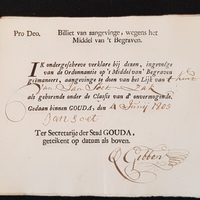 Pro Deo. Billet van aangevinge, wegens het
Middel van 't Begraven.
IK ondergeschreve verklare bij dezen, ingevolge
van de Ordonnantie op 't Middel van' Begraven
geëmaneert, aangevinge te doen van het Lijk van 't kind
Van Jan
als gehoorende onder de Classe van d' onvermogende.
Gedaan binnen GOUDA, den 4 Juny 1803
Jan
Ter Secretarije der Stad GOUDA,
geteikent op datum als boven.